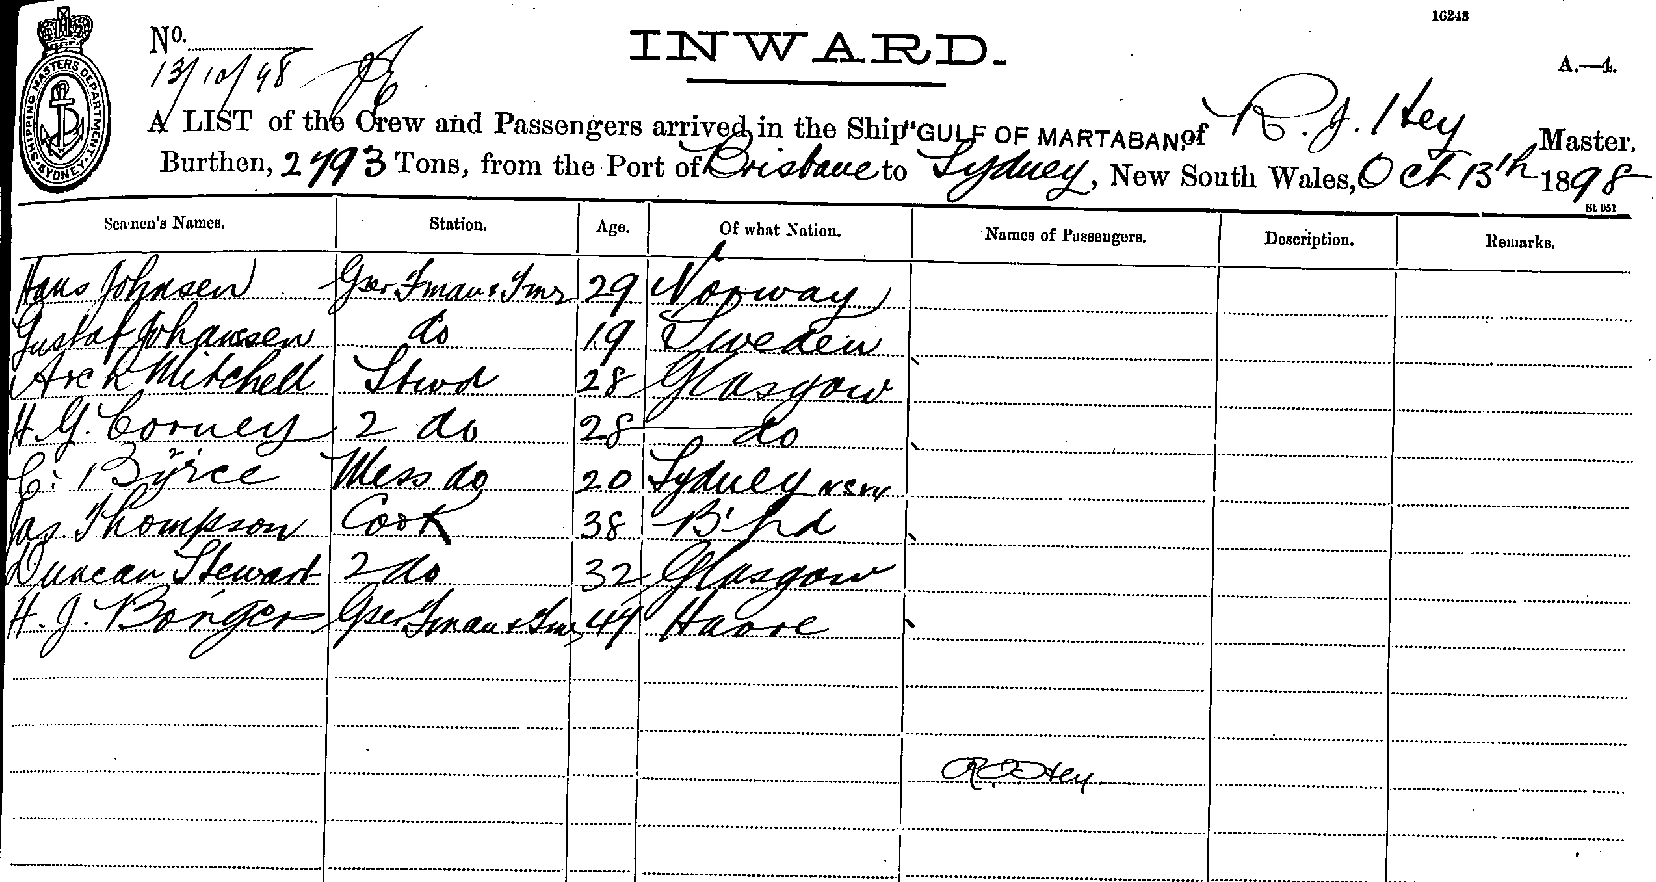 16243
No.
INWARD.
13/10/98
A.—4.
SHIPPING MASTERS DEPARTMENT SYDNEY
A LIST of the Crew and Passengers arrived in the Ship "GULF OF MARTABAN" of R. J. Hey Master,
Burthen, 2793 Tons, from the Port of Brisbane to Sydney, New South Wales, Oct 13th 1898
Seamen's Names. Station. Age. Of what Nation. Names of Passengers. Description. Remarks.
Hans Johnsen Gser Fman & Tmr 29 Norway
Gustaf Johansen do 19 Sweden
Arch Mitchell Stwd 28 Glasgow
H. G. Corney 2 do 28 do
C. Byrce Mess do 20 Sydney
Jas Thompson Cook 38 B'hd
Duncan Stewart 2 do 32 Glasgow
H. J. Borger Gser Fman & Tmr 44 Havre
R. J. Hey